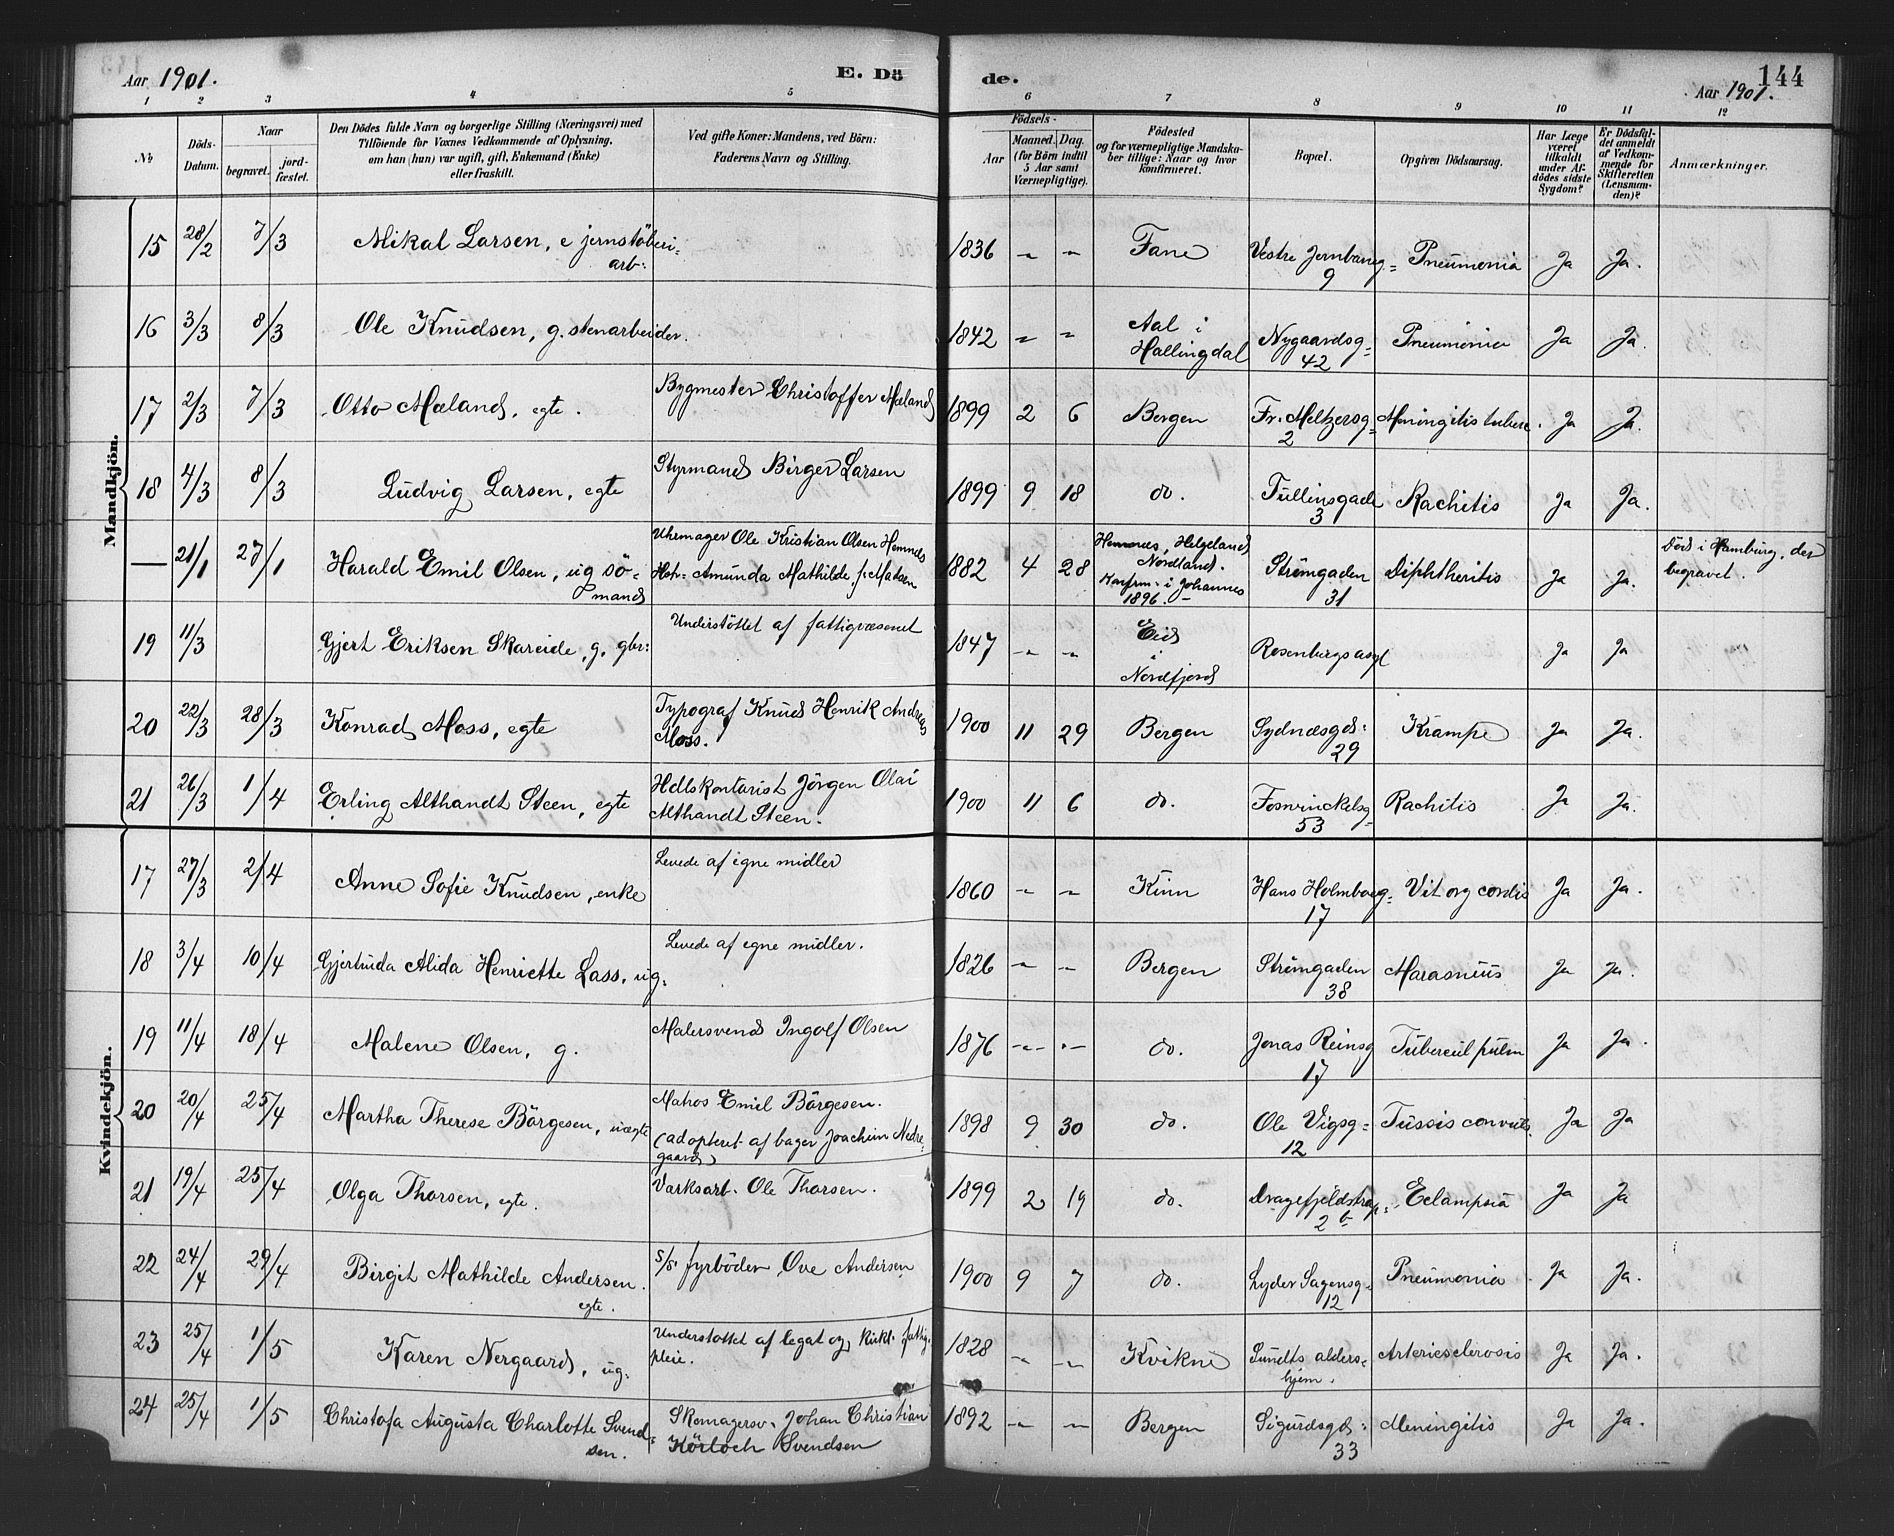 Aar 1901. E. Dö de. 144
Aar 1901.
1 2 3 4 5 6 7 8 9 10 11 12
No
Döds-Datum.
Naar
begravet.
jord-fæstet.
Den Dödes fulde Navn og borgerlige Stilling (Næringsvei) med
Tilföiende for Voxnes Vedkommende af Oplysning,
om han (hun) var ugift, gift, Enkemand (Enke)
eller fraskilt.
Ved gifte Koner: Mandens, ved Börn:
Faderens Navn og Stilling.
Födsels-
Aar
Maaned. Dag.
(for Börn indtil
5 Aar samt
Værnepligtige).
Födested
og for værnepligtige Mandska-
ber tillige: Naar og hvor
konfirmeret.
Bopæl.
Opgiven Dödsaarsag.
Har Læge
været
tilkaldt
under Af-
dödes sidste
Sygdom?
Er Dödsfal-
det anmeldt
af Vedkom-
mende for
Skifteretten
(Lensman-
den)?
Anmærkninger.
Mandkjön.
15 28/2 7/3 Mikal Larsen, e jernstöberi-
arb: 1836 " " Fane Vestre Jernbaneg= 9 Pneumonia Ja Ja.
16 3/3 8/3 Ole Knudsen, g. stenarbeider. 1842 " " Aal i
Hallingdal Nygaardsg= 42 Pneumonia Ja Ja.
17 2/3 7/3 Otto Mæland, egte. Bygmester Christoffer Mæland 1899 2 6 Bergen Fr. Meltzersg= 2 Meningitis tuberc. Ja Ja.
18 4/3 8/3 Ludvig Larsen, egte Styrmand Birger Larsen 1899 9 18 do. Tullinsgade 3 Rachitis Ja Ja.
— 21/1 27/1 Harald Emil Olsen, ug sö-
mand Uhrmager Ole Kristian Olsen Hemnes
Amunda Mathilde f. Madsen 1882 4 28 Hemnes, Helgeland
Nordland.
Konfirm. i Johannes
1896. Strömgaden 31 Diphtheritis Ja Ja. Död i Hamburg, der
begravet.
19 11/3 Gjert Eriksen Skareide, g. gbr: Understöttet af fattigvæsenet 1847 " " Eid
i
Nordfjord Rosenbergs asyl Ja Ja
20 22/3 28/3 Konrad Moss, egte Typograf Knud Henrik Andreas
Moss. 1900 11 29 Bergen Sydnæsgd: 29 Krampe Ja Ja.
21 26/3 1/4 Erling Althandt Steen, egte Hdlskontorist Jörgen Olai
Althandt Steen. 1900 11 6 do. Fosswinckelsg= 53 Rachitis Ja Ja.
Kvindekjön.
17 27/3 2/4 Anne Sofie Knudsen, enke Levede af egne midler 1860 " " Kinn Hans Holmboeg= 17 Vit org cordis Ja Ja.
18 3/4 10/4 Gjertruda Alida Henriette Lass, ug. Levede af egne midler. 1826 " " Bergen Strömgaden 38 Marasmus Ja Ja.
19 11/4 18/4 Malene Olsen, g. Malersvend Ingolf Olsen 1876 " " do. Jonas Reinsg 17 Tubercul pulm Ja Ja.
20 20/4 25/4 Martha Therese Börgesen, uægte Matros Emil Börgesen.
(adopteret af bager Joachim Nedre-
gaard) 1898 9 30 do. Ole Vigsg= 12 Tussis convuls. Ja Ja
21 19/4 25/4 Olga Thorsen, egte. Værksarb. Ole Thorsen. 1899 2 19 do. Dragefjeldstrap= 2 b Eclampsia Ja Ja
22 24/4 29/4 Birgit Mathilde Andersen.
egte. S/S fyrböder Ove Andersen 1900 9 7 do. Lyder Sagensg= 12 Pneumonia Ja Ja.
23 25/4 1/5 Karen Nergaard, ug. Understöttet af legat og kirkl. fattig-
pleie. 1828 " " Kvikne Sundts alders-
hjem. Arteriesclerosis Ja Ja.
24 25/4 1/5 Christofa Augusta Charlotte Svend-
sen. Skomagersv. Johan Christian
Körloch Svendsen 1892 " " Bergen Sigurdsgd: 33 Meningitis Ja Ja.